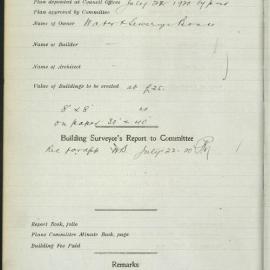 Plan deposited at Council Offices July 22nd 1920 by post
Plan approved by Committee
Name of Owner Water & Sewerage Board
Name of Builder
Name of Architect
Value of Buildings to be erected at £25.
8' x 8'
on paper 30' x 40'
Building Surveyor's Report to Committee
Rec for app July 22-20
Report Book, folio
Plans Committee Minute Book, page
Building Fee Paid
Remarks